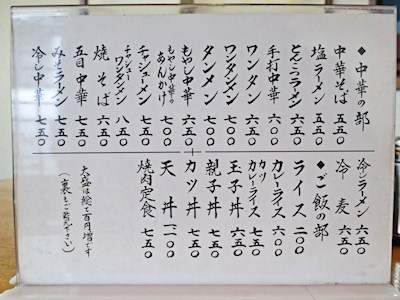 ◆中華の部
中華そば 五五〇
塩ラーメン 五五〇
とんこつラーメン 六五〇
手打中華 六〇〇
ワンタン 六五〇
ワンタンメン 七〇〇
タンメン 七〇〇
もやし中華 六五〇
もやし中華のあんかけ 七〇〇
チャシューメン 七五〇
チャシューワンタンメン 八五〇
焼そば 六五〇
五目中華 七五〇
みそラーメン 七五〇
冷し中華 七五〇
冷しラーメン 六五〇
冷麦 六五〇
◆ご飯の部
ライス 二〇〇
カレーライス 六〇〇
カツカレーライス 七五〇
玉子丼 六五〇
親子丼 七五〇
カツ丼 七五〇
天丼
焼肉定食 七五〇
大盛は総て百円増です
(裏もご覧下さい)